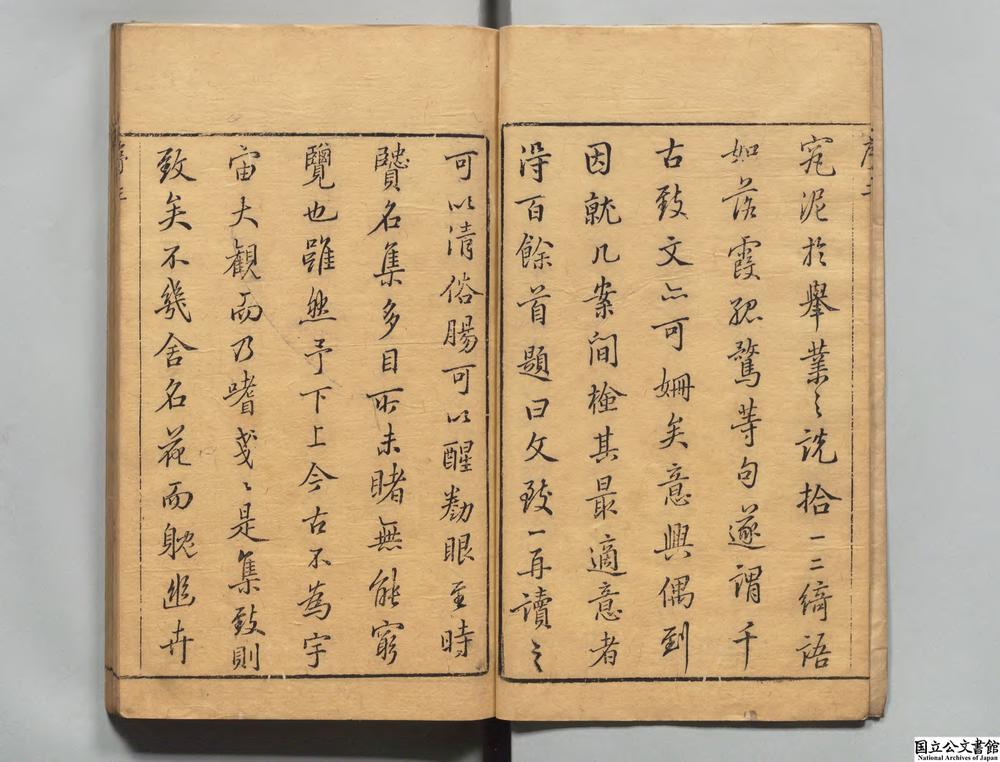 究泥於擧業之説拾一二綺語
如落霞孤鶩等句遂謂千
古致文亦可姍矣意興偶到
因就几案间檢其最適意者
得百餘首題曰文致一再讀之
可以清俗腸可以醒勌眼至時
賢名集多目所未睹無能窮
覽也雖然予下上今古不為宇
宙大觀而乃嗜戔〻是集致則
致矣不幾舍名花而躭幽卉
国立公文書館
National Archives of Japan